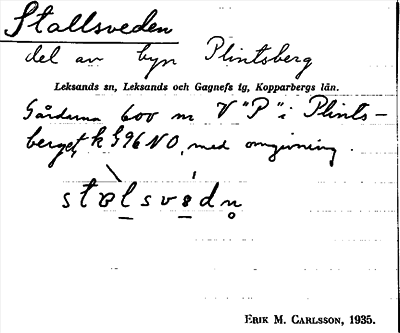 Stallsveden
del av byn Plintsberg
Leksands sn, Leksands och Gagnefs tg, Kopparbergs län.
Gårdarna 600 m V "P" i Plints-
berget, k § 96 NO, med omgivning.
stɑlsvedn̥
ERIK M. CARLSSON, 1935.